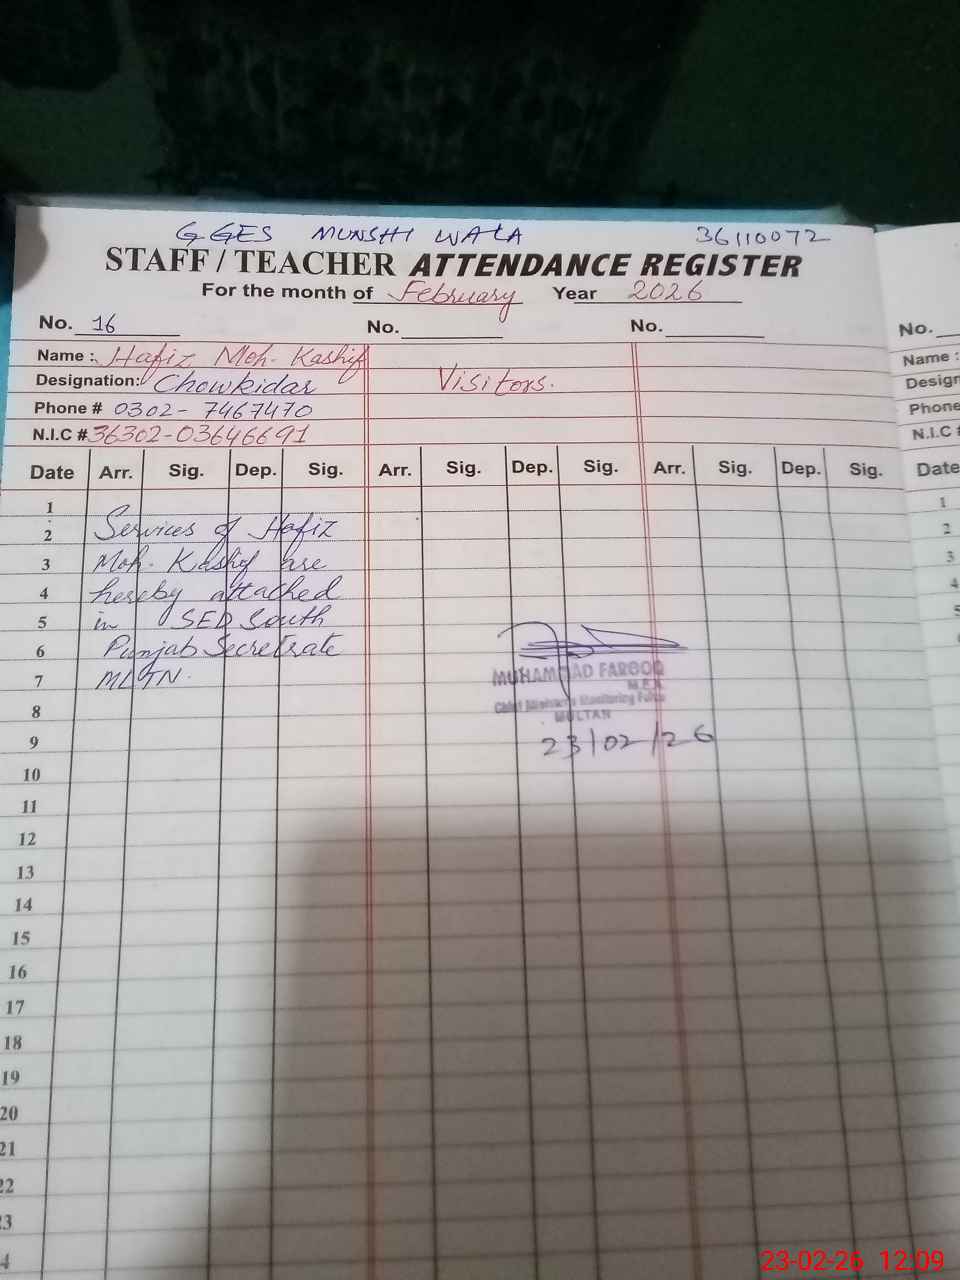 GGES MUNSHI WALA 36110072
STAFF / TEACHER ATTENDANCE REGISTER
For the month of February Year 2026
No. 16 No. No. No.
Name : Hafiz Moh. Kashif Name :
Designation: Chowkidar Visitors. Design
Phone # 0302-7467470 Phone
N.I.C # 36302-03646691 N.I.C #
Date Arr. Sig. Dep. Sig. Arr. Sig. Dep. Sig. Arr. Sig. Dep. Sig. Date
1 1
2 Services of Hafiz 2
3 Moh. Kashif are 3
4 hereby attached 4
5 in SED South 5
6 Punjab Secretrate
7 MLTN.
MUHAMMAD FAROOQ
M.E.A
Chief Minister's Monitoring Force
MULTAN
23/02/26
8
9
10
11
12
13
14
15
16
17
18
19
20
21
22
23
4
23-02-26 12:09